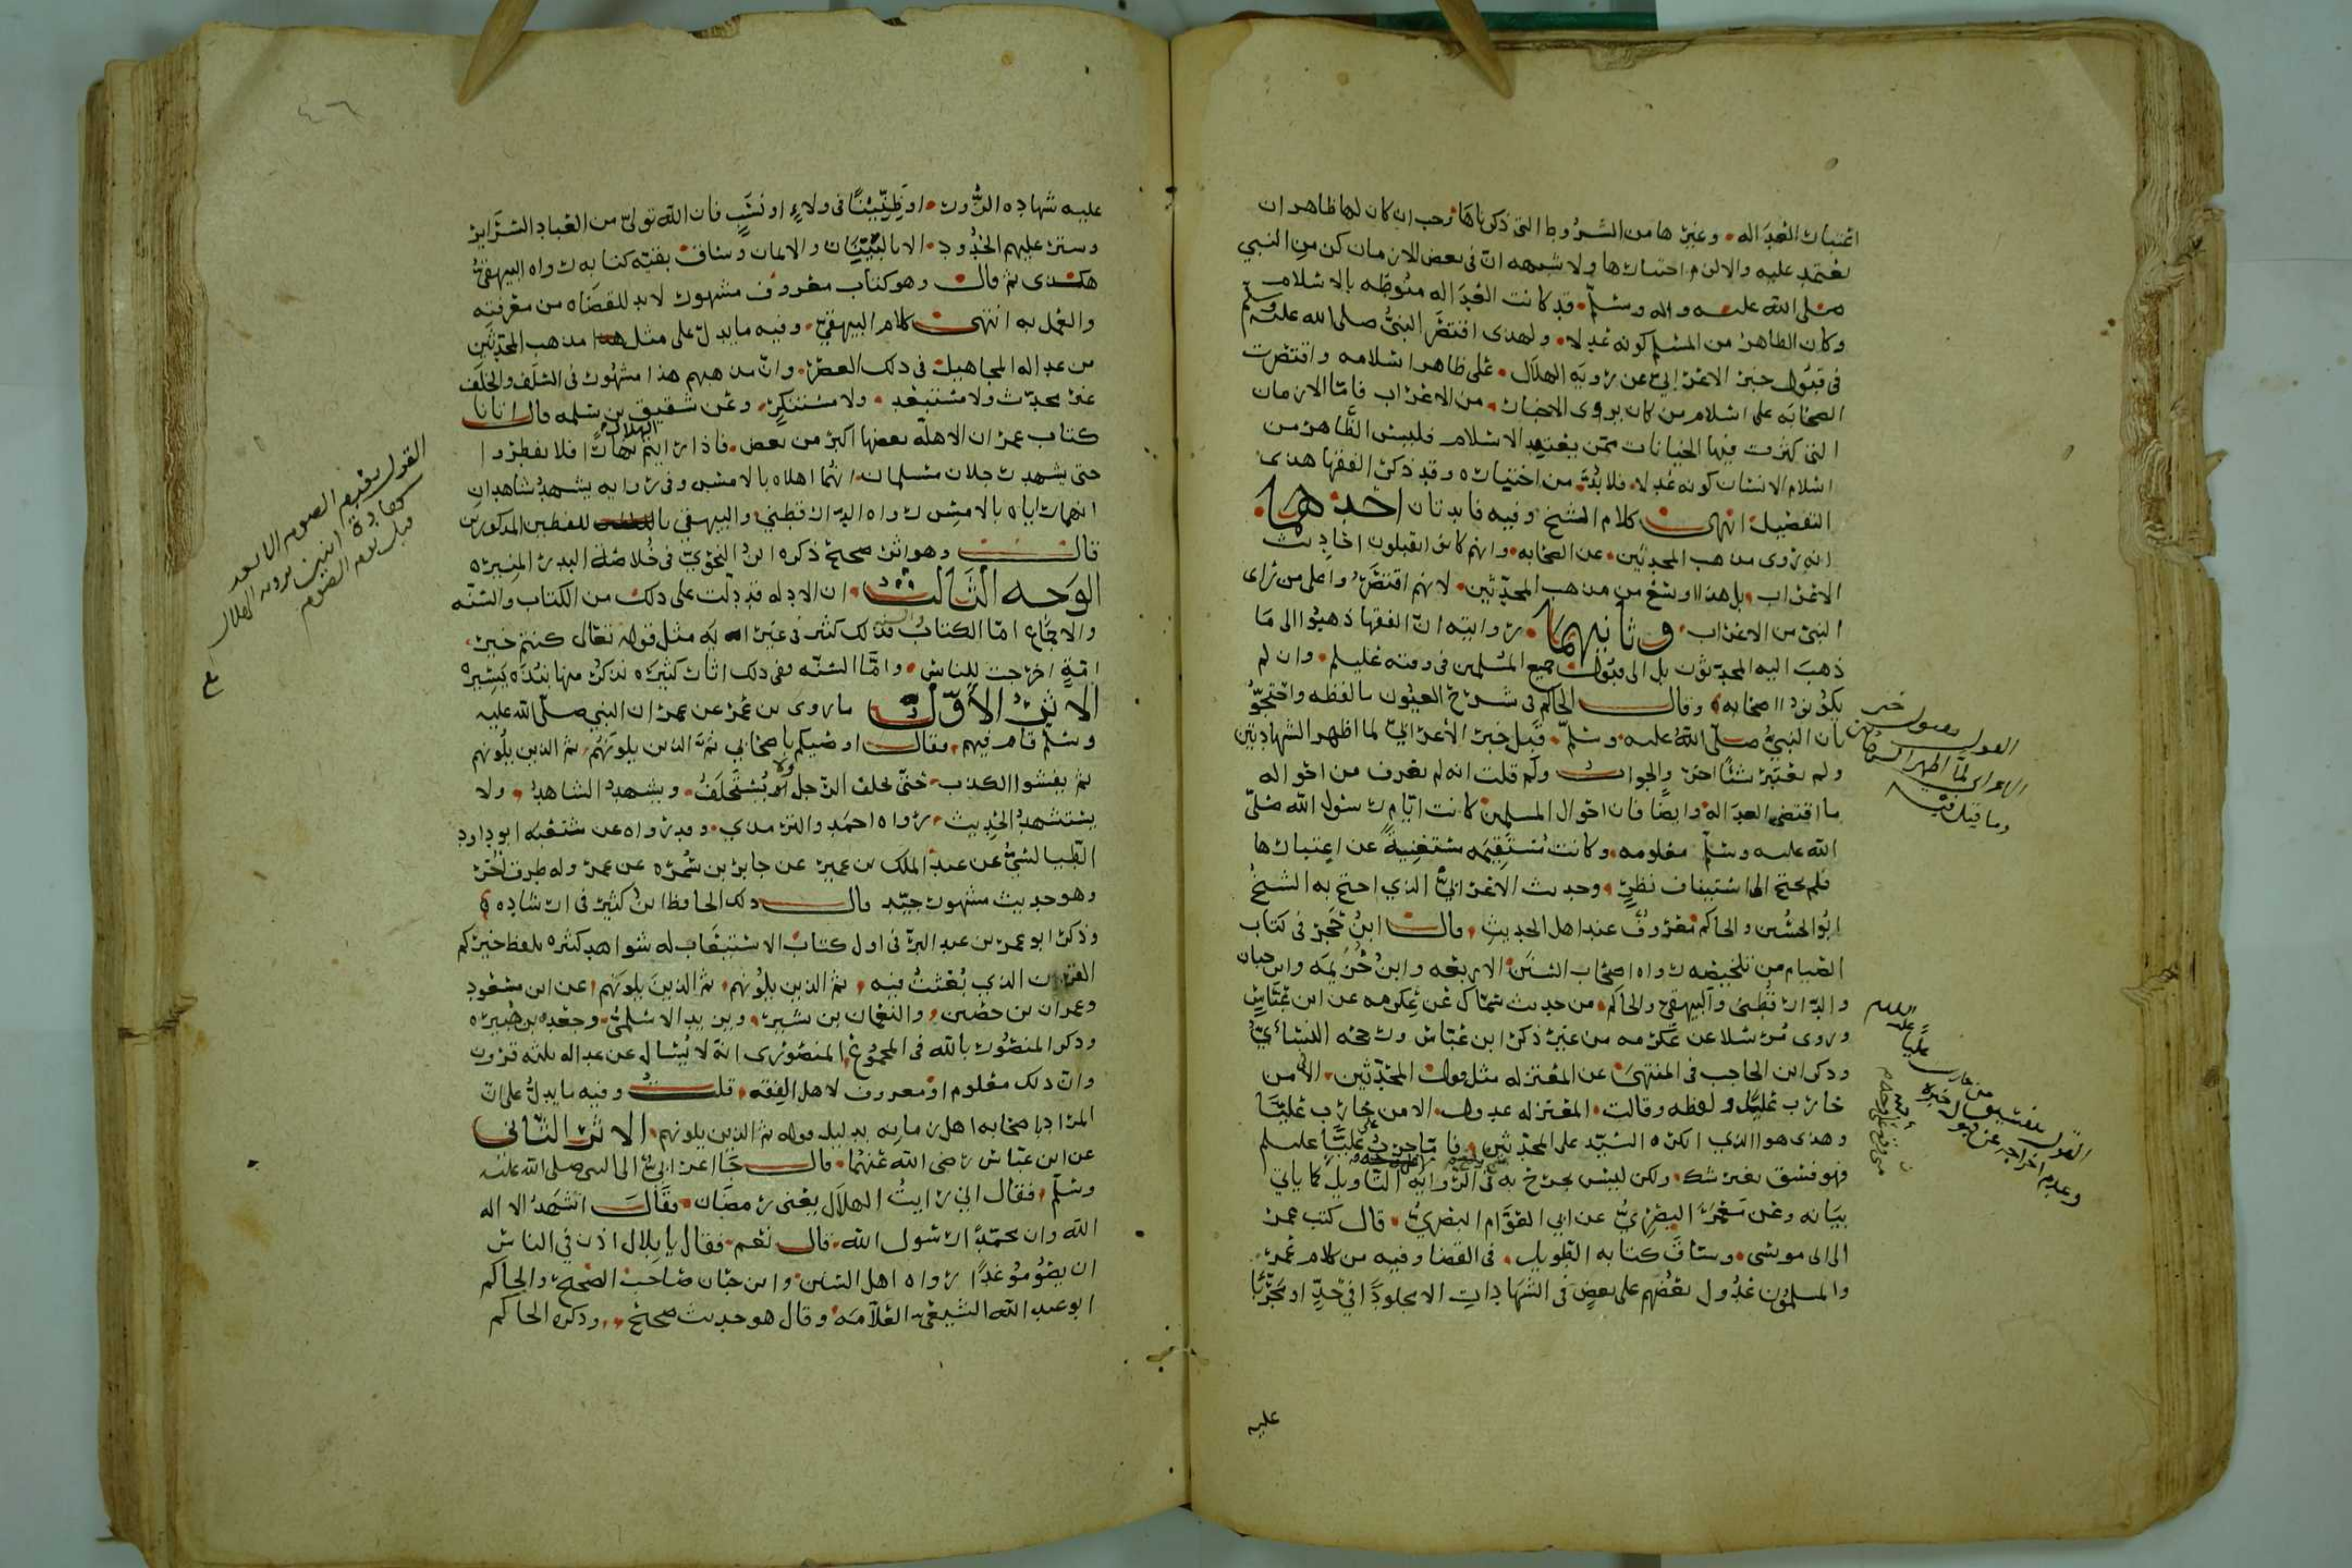 اعتبار العداله وغيرها من الشروط التي ذكرناها فحب ان كان لها ظاهر ان
يعتمد عليه والا لزم اختبارها ولا شبهه ان في بعض الازمان كزمن النبي
صلى الله عليه واله وسلم قد كانت العداله منوطه بالاسلام
وكان الظاهر من المسلم كونه عدلا ولهذى اقتصر النبي صلى الله عليه وسلم
في قبول خبر الاعرابي عن رويه الهلال على ظاهر اسلامه واقتصرت
الصحابه على اسلام من كان يروى الاخبار من الاعراب فاما الازمان
التي كثرت فيها الخيانات ممن يعتقد الاسلام فليس الظاهر من
اسلام الانسان كونه عدلا فلا بد من اختياره وقد ذكر الفقها هذى
التفصيل انتهى كلام الشيخ وفيه فايدتان احدهما
انه روى مذهب المحدثين عن الصحابه وانهم كانوا يقبلون احاديث
الاعراب بل هذا اوسع من مذهب المحدثين لانهم اقتصروا على من راى
النبي من الاعراب وثانيهما روايته ان الفقها ذهبوا الى ما
ذهب اليه المحدثون بل الى قبول جميع المسلمين في وقته عليلم وان لم
يكونوا اصحابه وقال الحاكم في شرح العيون ما لفظه واحتجوا
بان النبي صلى الله عليه وسلم قبل خبر الأعرابي لما اظهر الشهادتين
ولم يعتبر شيئا اخر والجواب ولم قلت انه لم يعرف من احواله
ما اقتضى العداله وايضا فان احوال المسلمين كانت ايام رسول الله صلى
الله عليه وسلم معلومه وكانت مستقيمه مستغنية عن اعتبارها
فلم يحتج الى استيناف نظر وحديث الاعرابي الذي احتج به الشيخ
ابو الحسين والحاكم معروف عند اهل الحديث قال ابن حجر في كتاب
الصيام من تلخيصه رواه اصحاب السنن الاربعه وابن خزيمه وابن حبان
والدارقطني والبيهقي والحاكم من حديث سماك عن عكرمه عن ابن عباس
وروى مرسلا عن عكرمه من غير ذكر ابن عباس ورجحه النسائي
وذكر ابن الحاجب في المنتهى عن المعتزله مثل قول المحدثين الا في من
حارب عليا ولفظه وقالت المعتزله عدول الا من حارب عليا
وهذى هو الذي انكره السيد على المحدثين فاما حرب علي عليلم
فهو فسق بغير شك ولكن ليس بجرح به في الروايه التاويل كما ياتي
بيانه وعن معمر البصري عن ابي العوام البصري قال كتب عمر
الى ابى موسى وساق كتابه الطويل في القضا وفيه من كلام عمر
والمسلمون عدول بعضهم على بعض في الشهادات الا مجلودا في حد او مجربا
عليه
القول بقبول خبر
الاعرابي لما اظهر الشهادتين
وما قيل فيه
عليه شهاده الزور او ظنينا في ولاء او نسب فان الله تولى من العباد السراير
وستر عليهم الحدود الا بالبينات والايمان وساق بقيه كتابه رواه البيهقي
هكذى ثم قال وهو كتاب معروف مشهور لا بد للقضاه من معرفته
والعمل به انتهى كلام البيهقي وفيه ما يدل على مثل مذهب المحدثين
من عداله المجاهيل في ذلك العصر وان مذهبهم هذا مشهور في السلف والخلف
غير محدث ولا مستبعد ولا مستنكر وعن شقيق بن سلمه قال اتانا
كتاب عمر ان الاهله بعضها اكبر من بعض فاذا رايتم الهلال نهارا فلا تفطروا
حتى يشهد رجلان مسلمان انهما اهلاه بالامس وفي روايه يشهد شاهدان
انهما راياه بالامس رواه الدارقطني والبيهقي باللفظين المذكورين
قال وهو اثر صحيح ذكره ابن النحوي في خلاصة البدر المنير
الوجه الثالث ان الادله قد دلت على ذلك من الكتاب والسنه
والاجماع اما الكتاب فذلك كثير في غير ايه مثل قوله تعالى كنتم خير
امة اخرجت للناس واما السنه ففي ذلك اثار كثيره نذكر منها نبذه يسيره
الاثر الاول ما روى بن عمر عن عمر ان النبي صلى الله عليه
وسلم قام فيهم فقال اوصيكم باصحابي ثم الذين يلونهم ثم الذين يلونهم
ثم يفشوا الكذب حتى يحلف الرجل ولا يستحلف ويشهد الشاهد ولا
يستشهد الحديث رواه احمد والترمذي وقد رواه عن شعبه ابو داود
الطيالسي عن عبد الملك بن عمير عن جابر بن سمره عن عمر وله طرق اخر
وهو حديث مشهور جيد قال ذلك الحافظ ابن كثير في ارشاده
وذكر ابو عمر بن عبد البر في اول كتاب الاستيعاب له شواهد كثيره بلفظ خيركم
القرن الذي بعثت فيه ثم الذين يلونهم ثم الذين يلونهم عن ابن مسعود
وعمران بن حصين والنعمان بن بشير وبريده الاسلمي وجعده بن هبيره
وذكر المنصور بالله في المجموع المنصورى انه لا يسال عن عداله ثلثه قرون
وان ذلك معلوم او معروف لاهل الفقه قلت وفيه ما يدل على ان
المراد باصحابه اهل زمانه بدليل قوله ثم الذين يلونهم الاثر الثاني
عن ابن عباس رضى الله عنهما قال جا اعرابي الى النبي صلى الله عليه
وسلم فقال اني رايت الهلال يعنى رمضان فقال اتشهد ان لا اله الا
الله وان محمدا رسول الله قال نعم فقال يا بلال اذن في الناس
ان يصوموا غدا رواه اهل السنن وابن حبان صاحب الصحيح والحاكم
ابو عبد الله الشيعي العلامه وقال هو حديث صحيح وذكره الحاكم